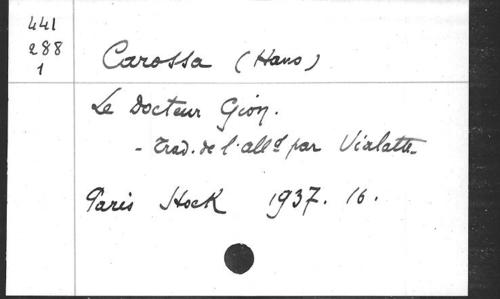 441
288
1
Carossa (Hans)
Le Docteur Gion.
- Trad. de l'all^d par Vialatte.
Paris Stock 1937. 16.